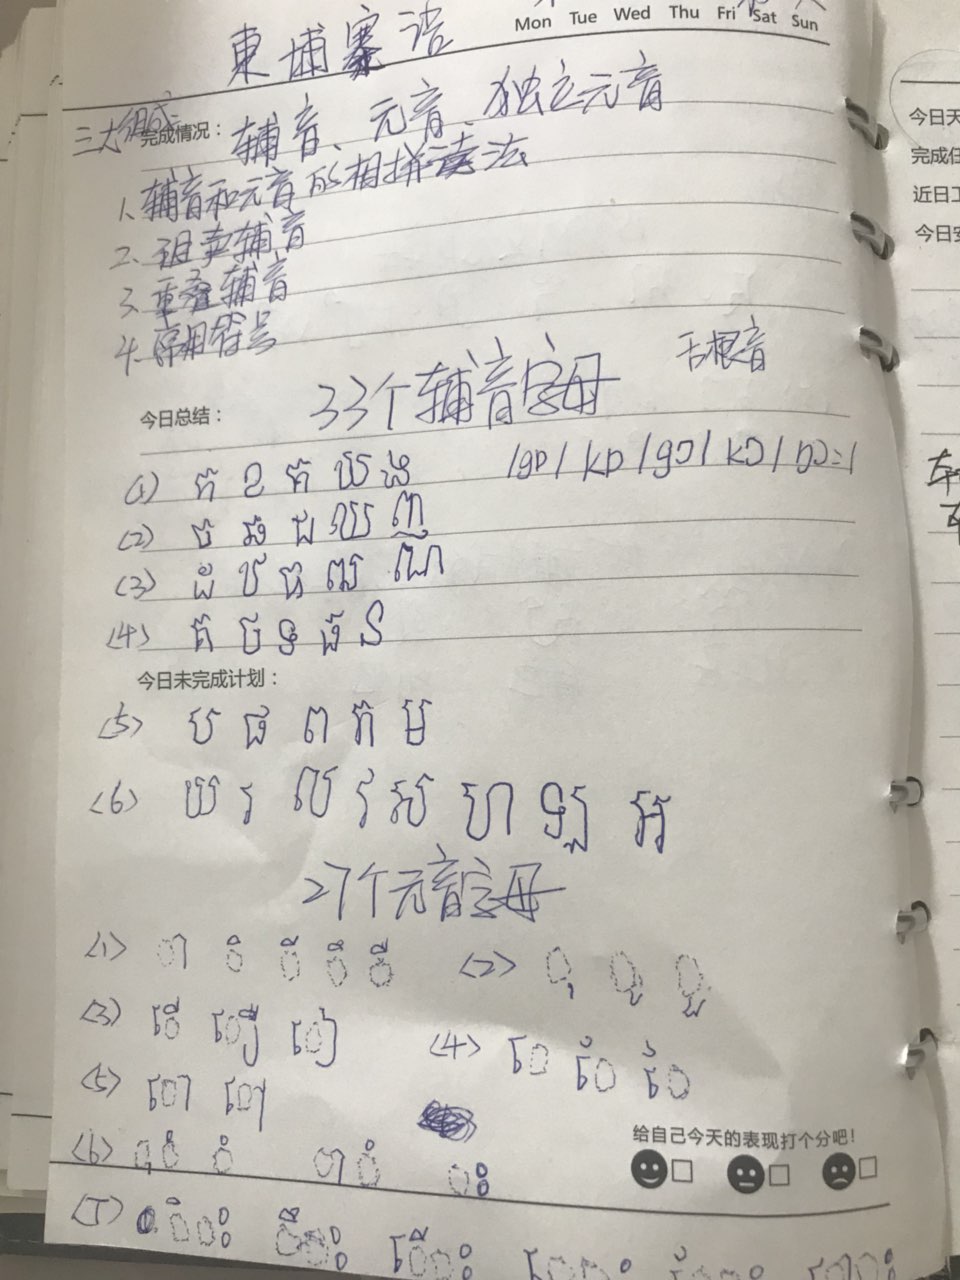 柬埔寨语
Mon Tue Wed Thu Fri Sat Sun
三大组成
完成情况：
辅音、元音、独立元音
1、辅音和元音的相拼读法
2、组卖辅音
3、重叠辅音
4、常用符号
今日总结：
33个辅音字母 舌根音
(1) ក ខ គ ឃ ង
(2) ច ឆ ជ ឈ ញ
(3) ដ ឋ ឌ ឍ ណ
(4) ត ថ ទ ធ ន
今日未完成计划：
(5) ប ផ ព ភ ម
(6) យ រ ល វ ស ហ ឡ អ
27个元音字母
(1) ា ិ ី ឹ ឺ (2) ុ ូ ួ
(3) ើ ឿ ៀ (4) េ ែ ៃ
(5) ោ ៅ
(6) ុំ ំ ាំ ះ
给自己今天的表现打个分吧！
今日天
完成任
近日工
今日安